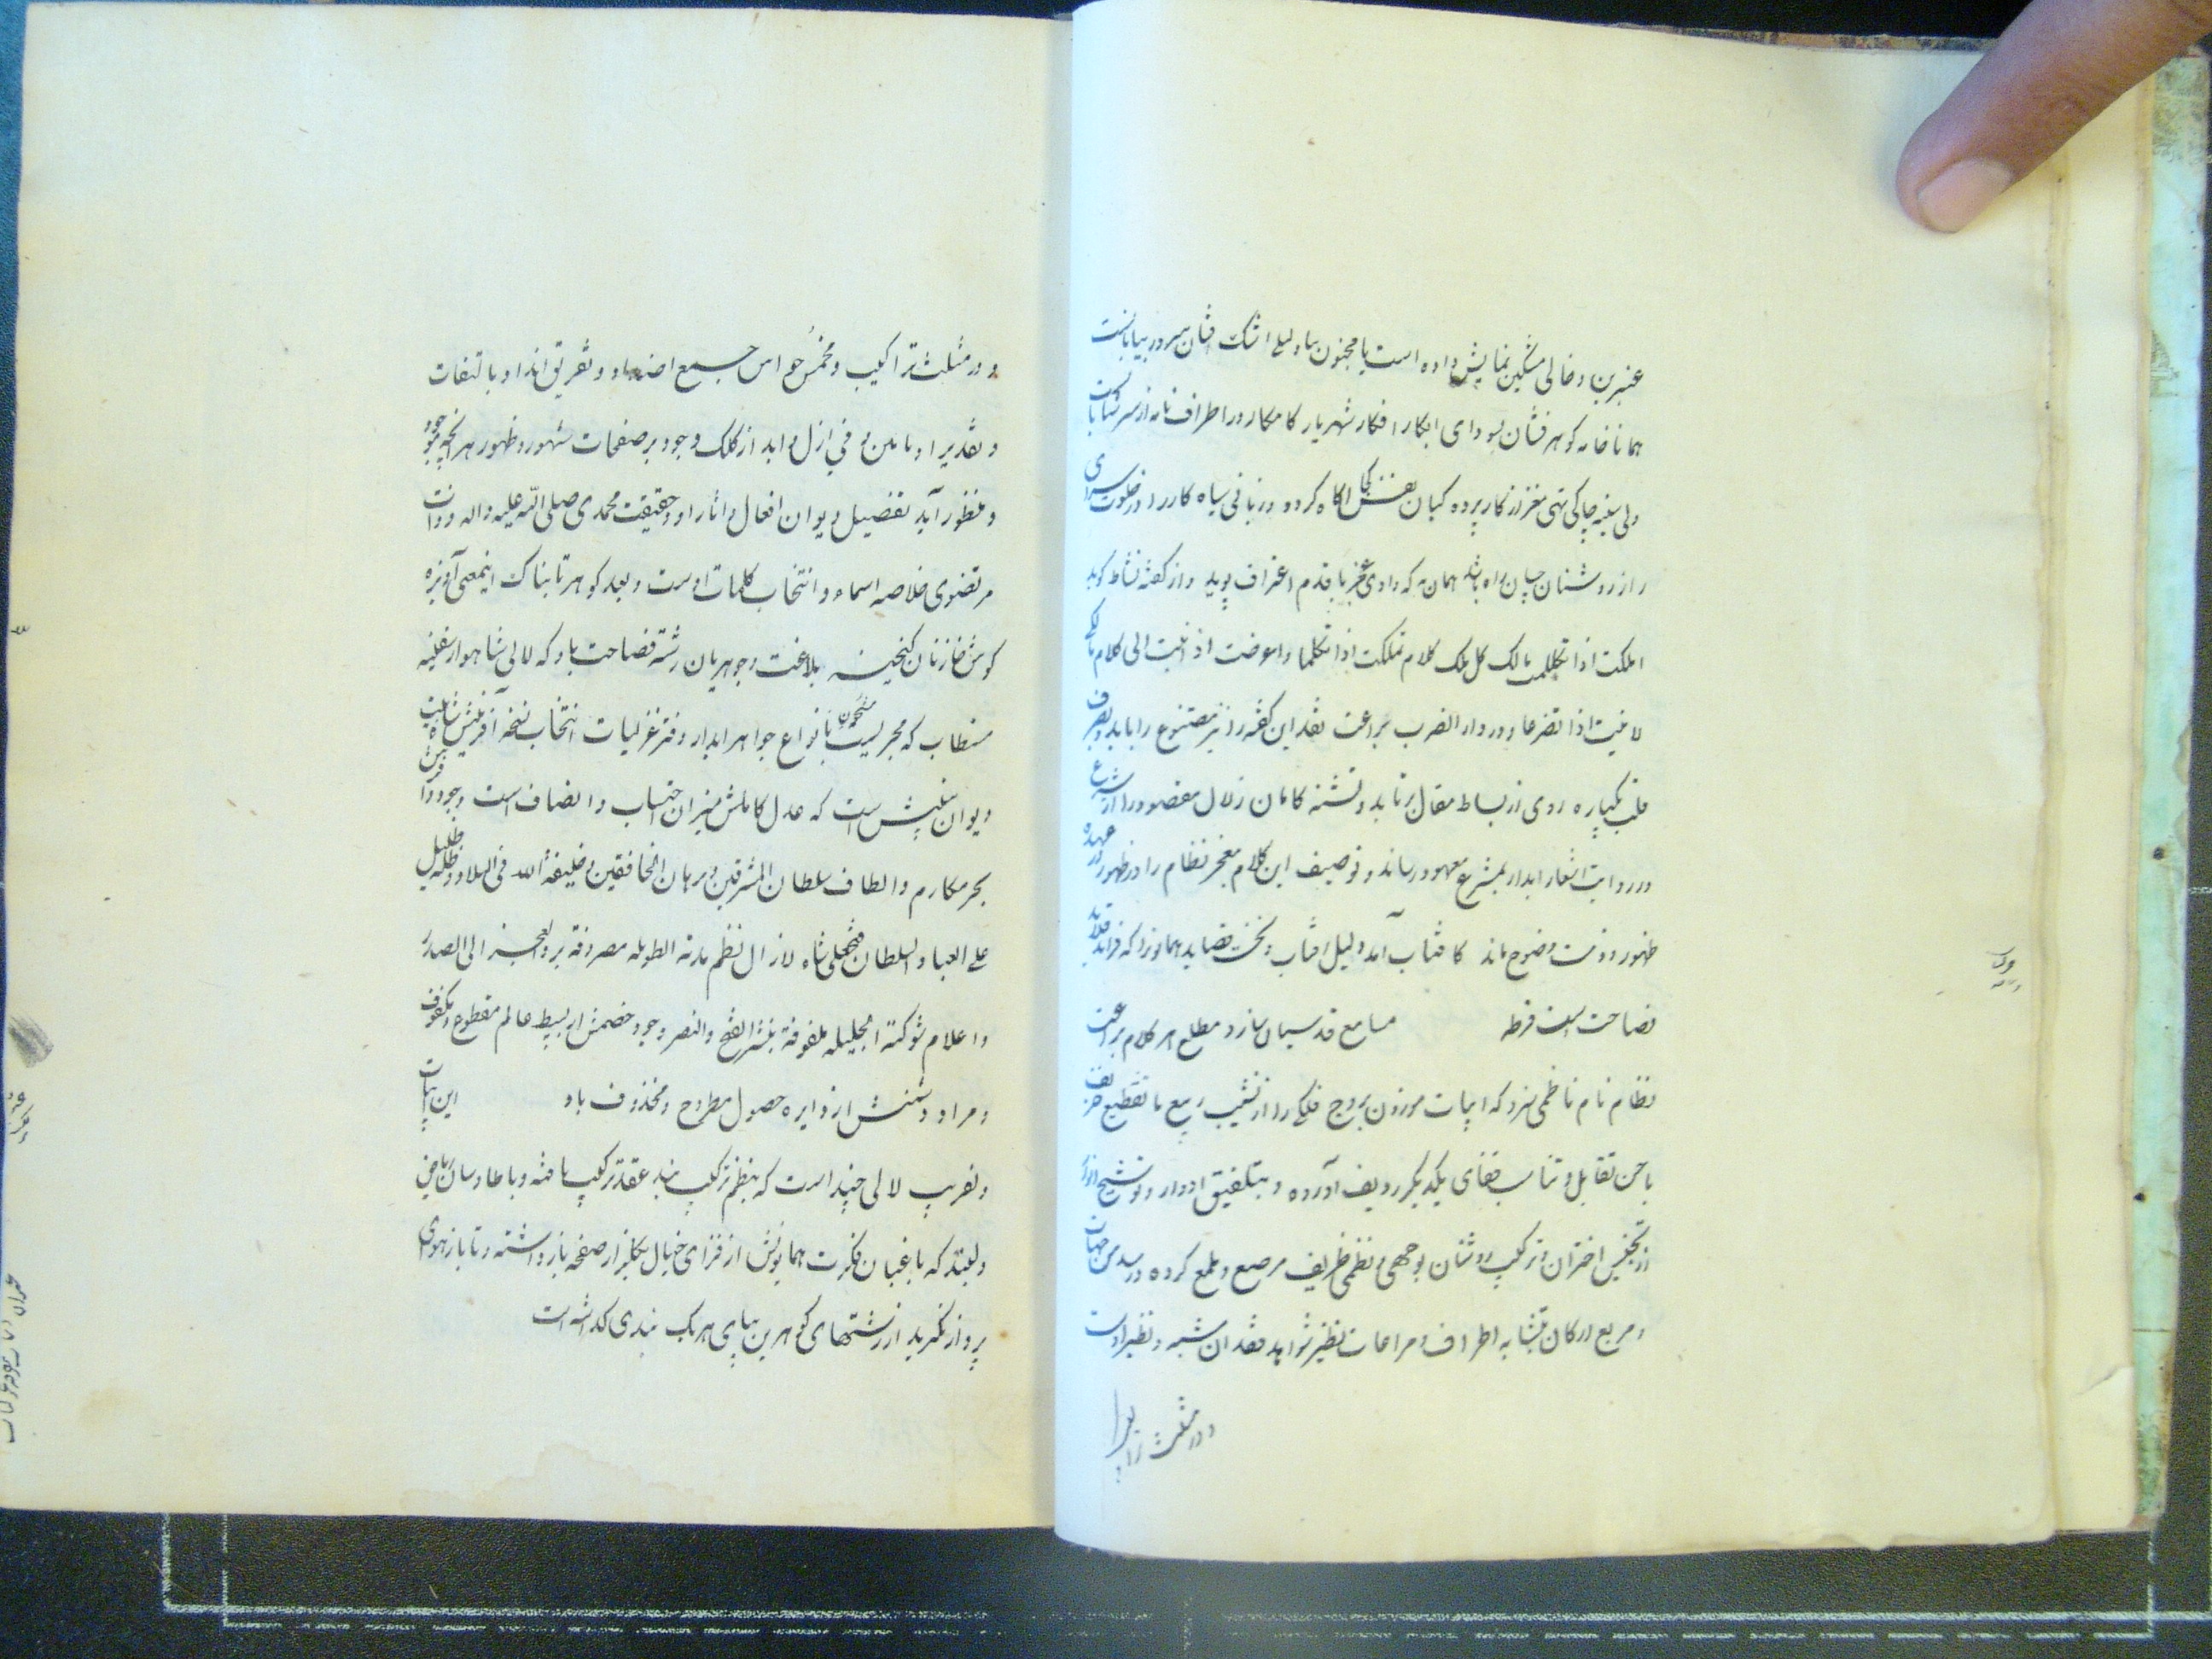 عنبرین و خالی مشکین نمایش داده است یا مجنون با لیلی اشک افشان سر در بیابانست
همانا خامه کوهر فشان بسودای ابکار افکار شهریار کامکار در اطراف نامه از سر
ولی سفینه چاکی تهی مغز از کار پرده کیان آکاه کردد و زبانی سیاه کار را در خلوت سرای
راز روشنان چسان راه باشد همان به که وادی عجز با قدم اعتراف پوید و از کفته نشاط کوید
املکت اذا تکلمت مالک کل ملک کلام تملکت اذا تکلما و اعرضت اذ الی کلام
لاغیت اذا تضرعا و در دار الضرب براعت نقد این کفته را نیز
قلب یکباره روی از بساط مقال برتابد و تشنه کامان زلال مقصود را از شرع
در روایت اشعار ابدار بمشرع معهود رساند و توصیف این کلام معجز نظام را در ظهور در عهده
ظهور و ذمت وضوح ماند که آفتاب آمد دلیل آفتاب و نخست قصاید همایونرا که فراید قلاید
فصاحت است قرطه مسامع قدسیان سازد مطلع هر کلام براعت
نظام نام ناظمی سزد که ابیات موزون بروج فلکی را از تشبیب ربیع تا تقطیع خریف
با حسن تقابل و تناسب قفای یکدیکر ردیف آورده و بتلفیق ادوار و توشیح انوار
از تجنیس اختران و ترکیب روشنان بوجهی و نظمی ظریف مرصع و ملمع کرده در مسدس جهات
و مربع ارکان بتشابه اطراف و مراعات نظیر شواهد فقدان شبه و نظیر اوست
و در مثلث ترا
و در مثلث تراکیب و مخمس حواس جمیع اضداد و تفریق انداد بالتفات
و تقدیر او مابین وفی ازل و ابد از کلک وجود بر صفحات شهور و ظهور هر آنچه موجود
و منظور آید تفضیل دیوان افعال و اثار او و حقیقت محمدی صلی الله علیه واله و ذات
مرتضوی خلاصه اسماء و انتخاب کلمات اوست و بعد کوهر تابناک اینمعنی آویزه
کوش خازنان کنجینه بلاغت و جوهریان رشته فصاحت باد که لالی شاهوار سفینه
مستطاب که بحریست مشحون بانواع جواهر ابدار دفتر غزلیات انتخاب نسخه آفرینش شاهیت
دیوان بینش است که عدل کاملش میزان احتساب و انصاف است و وجود
بحر مکارم و الطاف سلطان المشرقین و برهان الخافقین و خلیفة الله فی البلاد و ظله ظلیل
علی العباد السلطان فتحعلی شاه لازال نظم مدته الطویله مصروفة برد العجز الی الصدر
و اعلام شوکته الجلیله ملفوفة بنشر الفتح و النصر وجود خصمش از بسیط عالم مقطوع و مکفوف
و مراد دشمنش از دایره حصول مطروح و محذوف باد این ابیات
دلفریب لالی چند است که بنظم ترکیب بند عقد ترکیب یافته و یا طاوسان ریاضی
دلبند که باغبان فکرت همایونش از فزای خیال بکلزار صفحه باز داشته و تا باز هوای
پرواز نکیرند از رشتهای کوهرین بپای هریک بندی کذاشته است